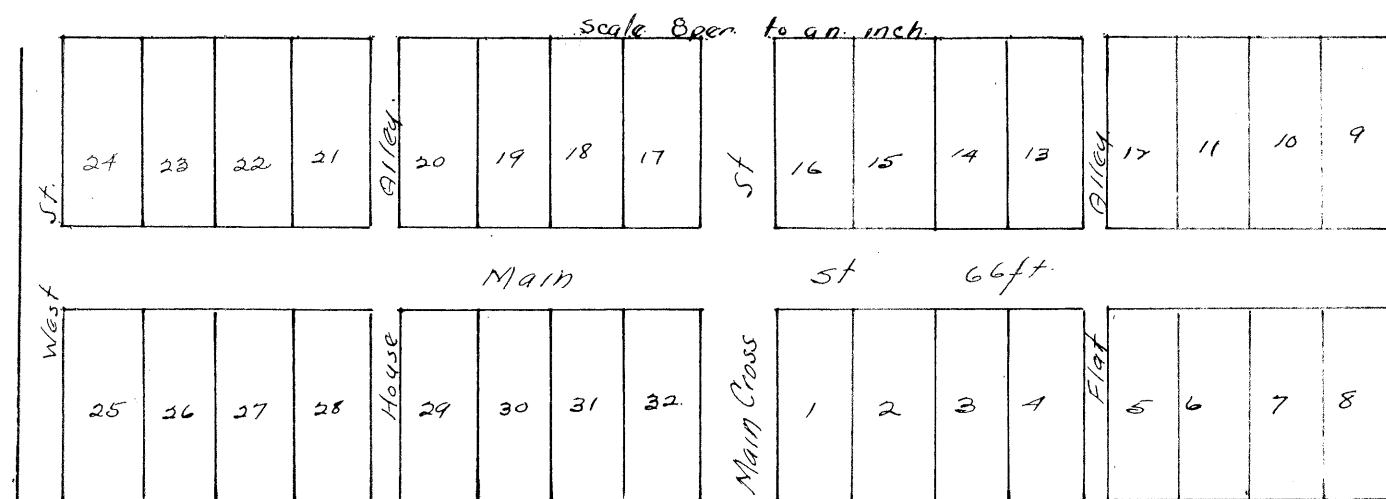 Scale 8per. to an inch.
24 23 22 21 20 19 18 17 16 15 14 13 12 11 10 9
West St.
House Alley.
Main Cross St
Flat Alley
Main St 66ft.
25 26 27 28 29 30 31 32. 1 2 3 4 5 6 7 8